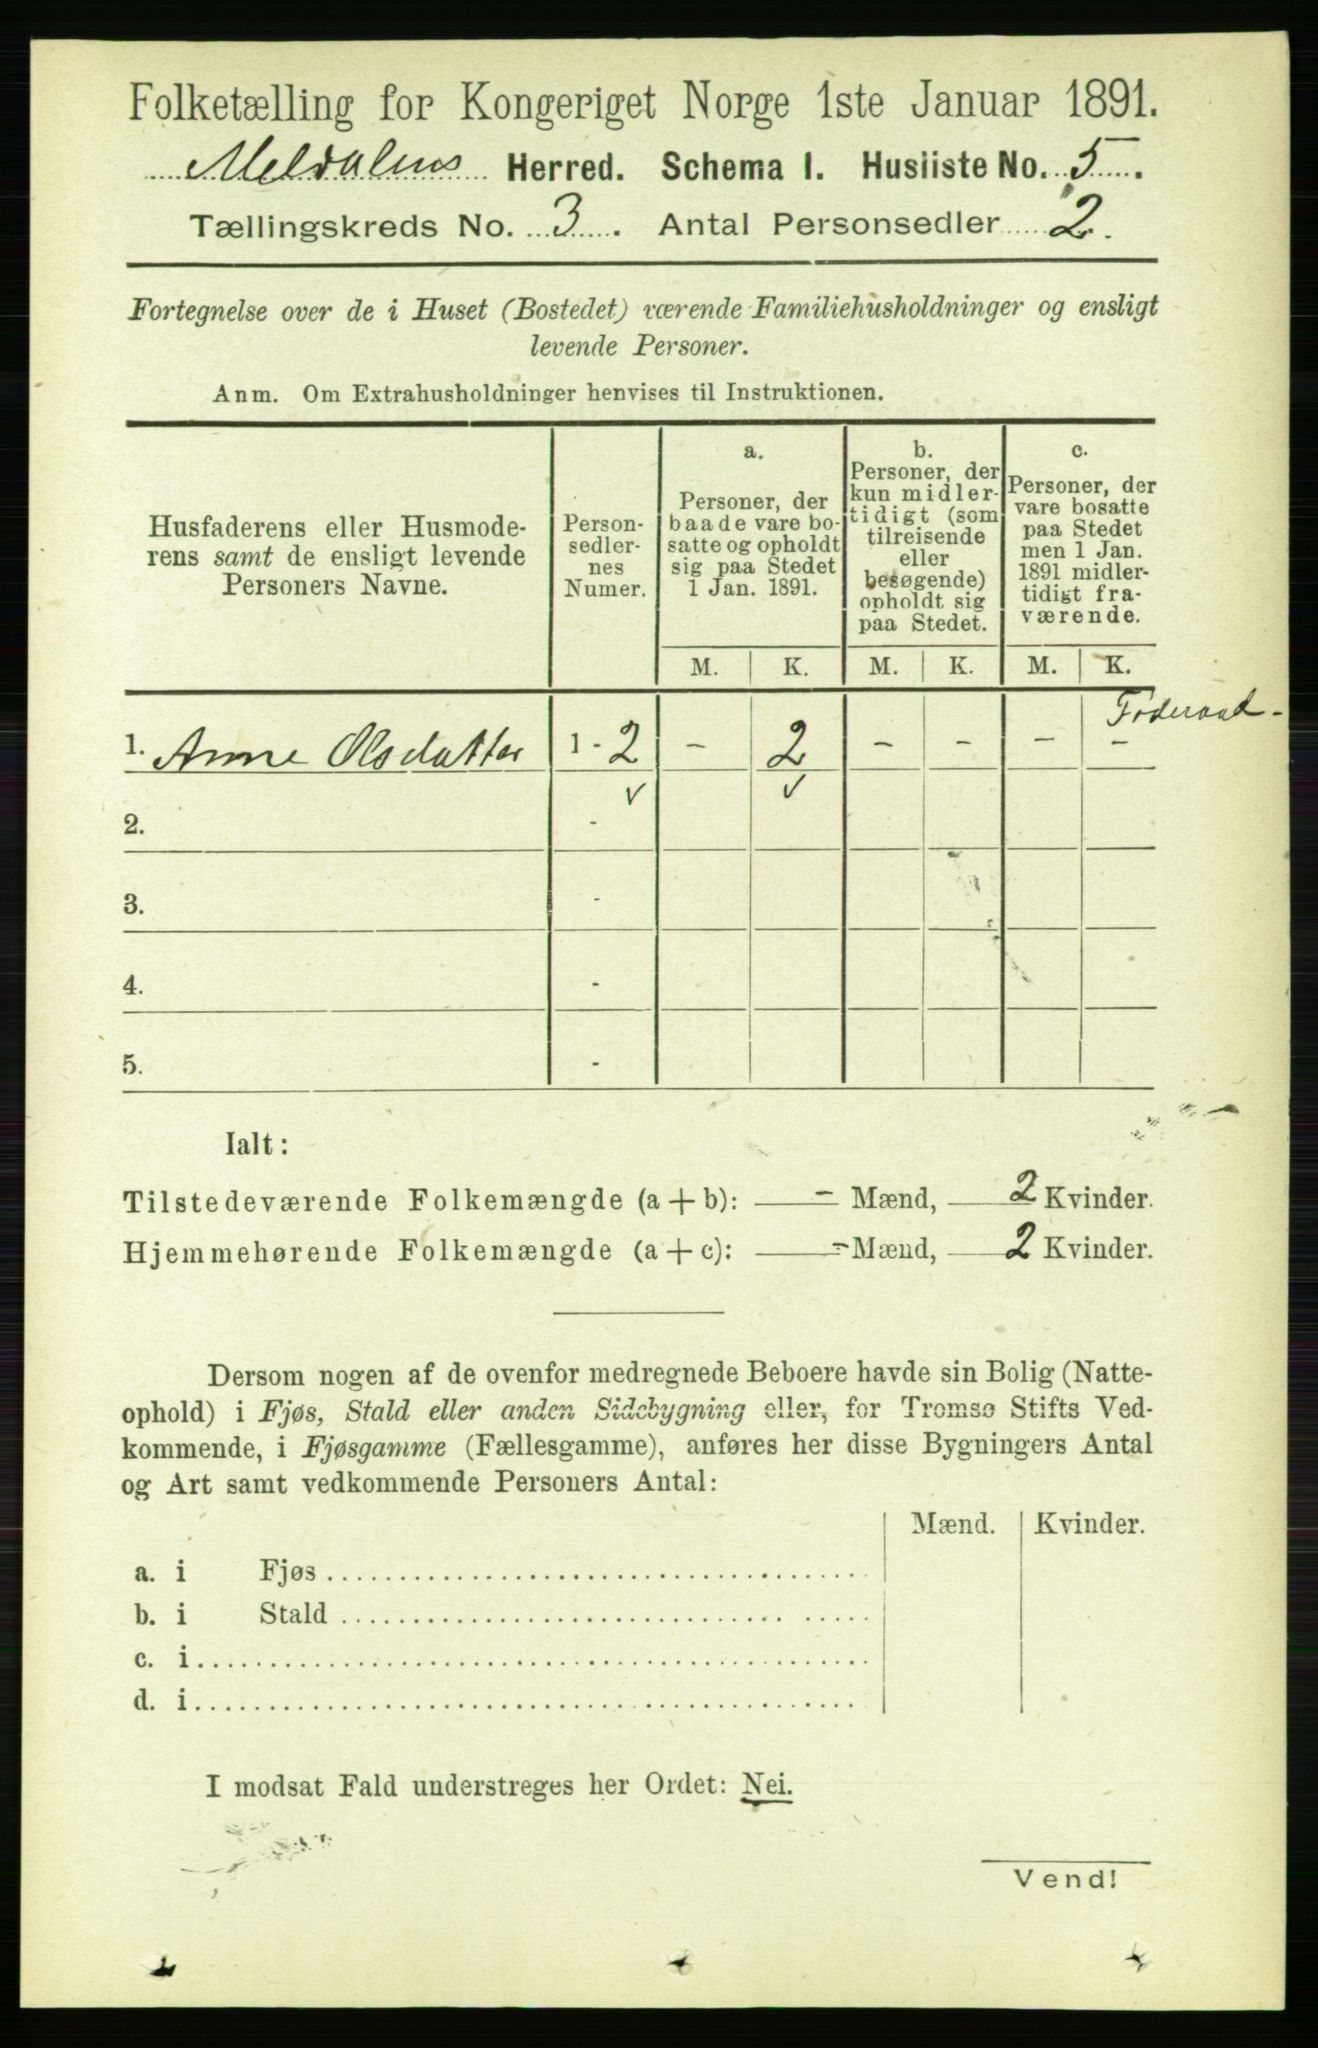 Folketælling for Kongeriget Norge 1ste Januar 1891.
Meldalens Herred. Schema I. Husliste No. 5.
Tællingskreds No. 3. Antal Personsedler 2.
Fortegnelse over de i Huset (Bostedet) værende Familiehusholdninger og ensligt
levende Personer.
Anm. Om Extrahusholdninger henvises til Instruktionen.
Husfaderens eller Husmode-
rens samt de ensligt levende
Personers Navne.
Person-
sedler-
nes
Numer.
a.
Personer, der
baade vare bo-
satte og opholdt
sig paa Stedet
1 Jan. 1891.
b.
Personer, der
kun midler-
tidigt (som
tilreisende
eller
besøgende)
opholdt sig
paa Stedet.
c.
Personer, der
vare bosatte
paa Stedet
men 1 Jan.
1891 midler-
tidigt fra-
værende.
M. K. M. K. M. K.
Føderaad -
1. Anne Olsdatter 1 - 2 - 2 - - - -
✓ ✓
2. -
3. -
4. -
5. -
Ialt:
Tilstedeværende Folkemængde (a + b): - Mænd, 2 Kvinder.
Hjemmehørende Folkemængde (a + c): - Mænd, 2 Kvinder.
Dersom nogen af de ovenfor medregnede Beboere havde sin Bolig (Natte-
ophold) i Fjøs, Stald eller anden Sidebygning eller, for Tromsø Stifts Ved-
kommende, i Fjøsgamme (Fællesgamme), anføres her disse Bygningers Antal
og Art samt vedkommende Personers Antal:
Mænd. Kvinder.
a. i Fjøs
b. i Stald
c. i
d. i
I modsat Fald understreges her Ordet: Nei.
Vend!